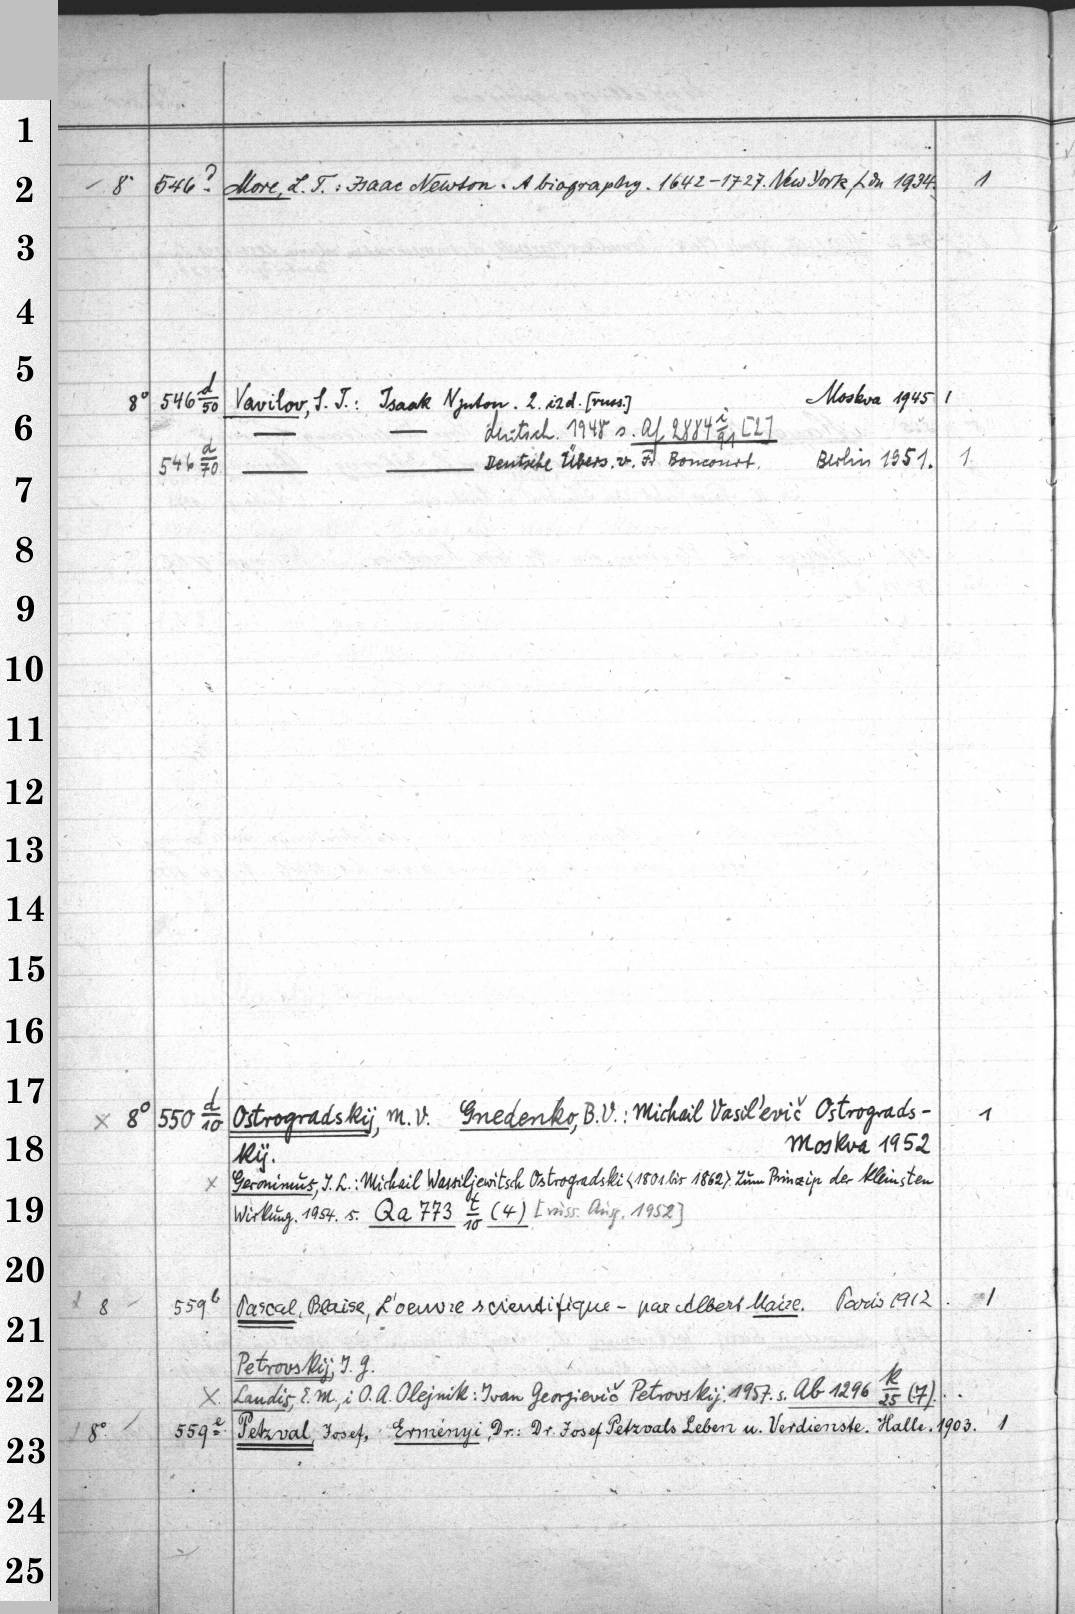 1
2 8° 546 More, L. T.: Isaac Newton. A biography. 1642-1727. New York, Ldn 1934. 1
3
4
5
8° 546 d/50 Vavilov, S. I.: Isaak N'juton. 2. izd. [russ.] Moskva 1945 1
6 — — deutsch. 1948 s. Af 2884 i/91 [2]
546 d/70 — — Deutsche Übers. v. Fr Boncourt. Berlin 1951. 1
7
8
9
10
11
12
13
14
15
16
17
× 8° 550 d/10 Ostrogradskij, M. V. Gnedenko, B. V.: Michail Vasil'evič Ostrograds- 1
18 kij. Moskva 1952
× Geronimus, J. L.: Michail Wassiljewitsch Ostrogradski <1801 bis 1862> Zum Prinzip der kleinsten
19 Wirkung. 1954. s. Qa 773 t/10 (4) [russ. Ausg. 1952]
20
8 559 b Pascal, Blaise, L'oeuvre scientifique - par Albert Maire. Paris 1912. 1
21
Petrovskij, I. G.
22 × Landis, E. M., i O. A. Olejnik: Ivan Georgievič Petrovskij. 1957. s. Ab 1296 k/25 (7).
8° 559 e Petzval, Josef, Erményi, Dr.: Dr. Josef Petzvals Leben u. Verdienste. Halle. 1903. 1
23
24
25